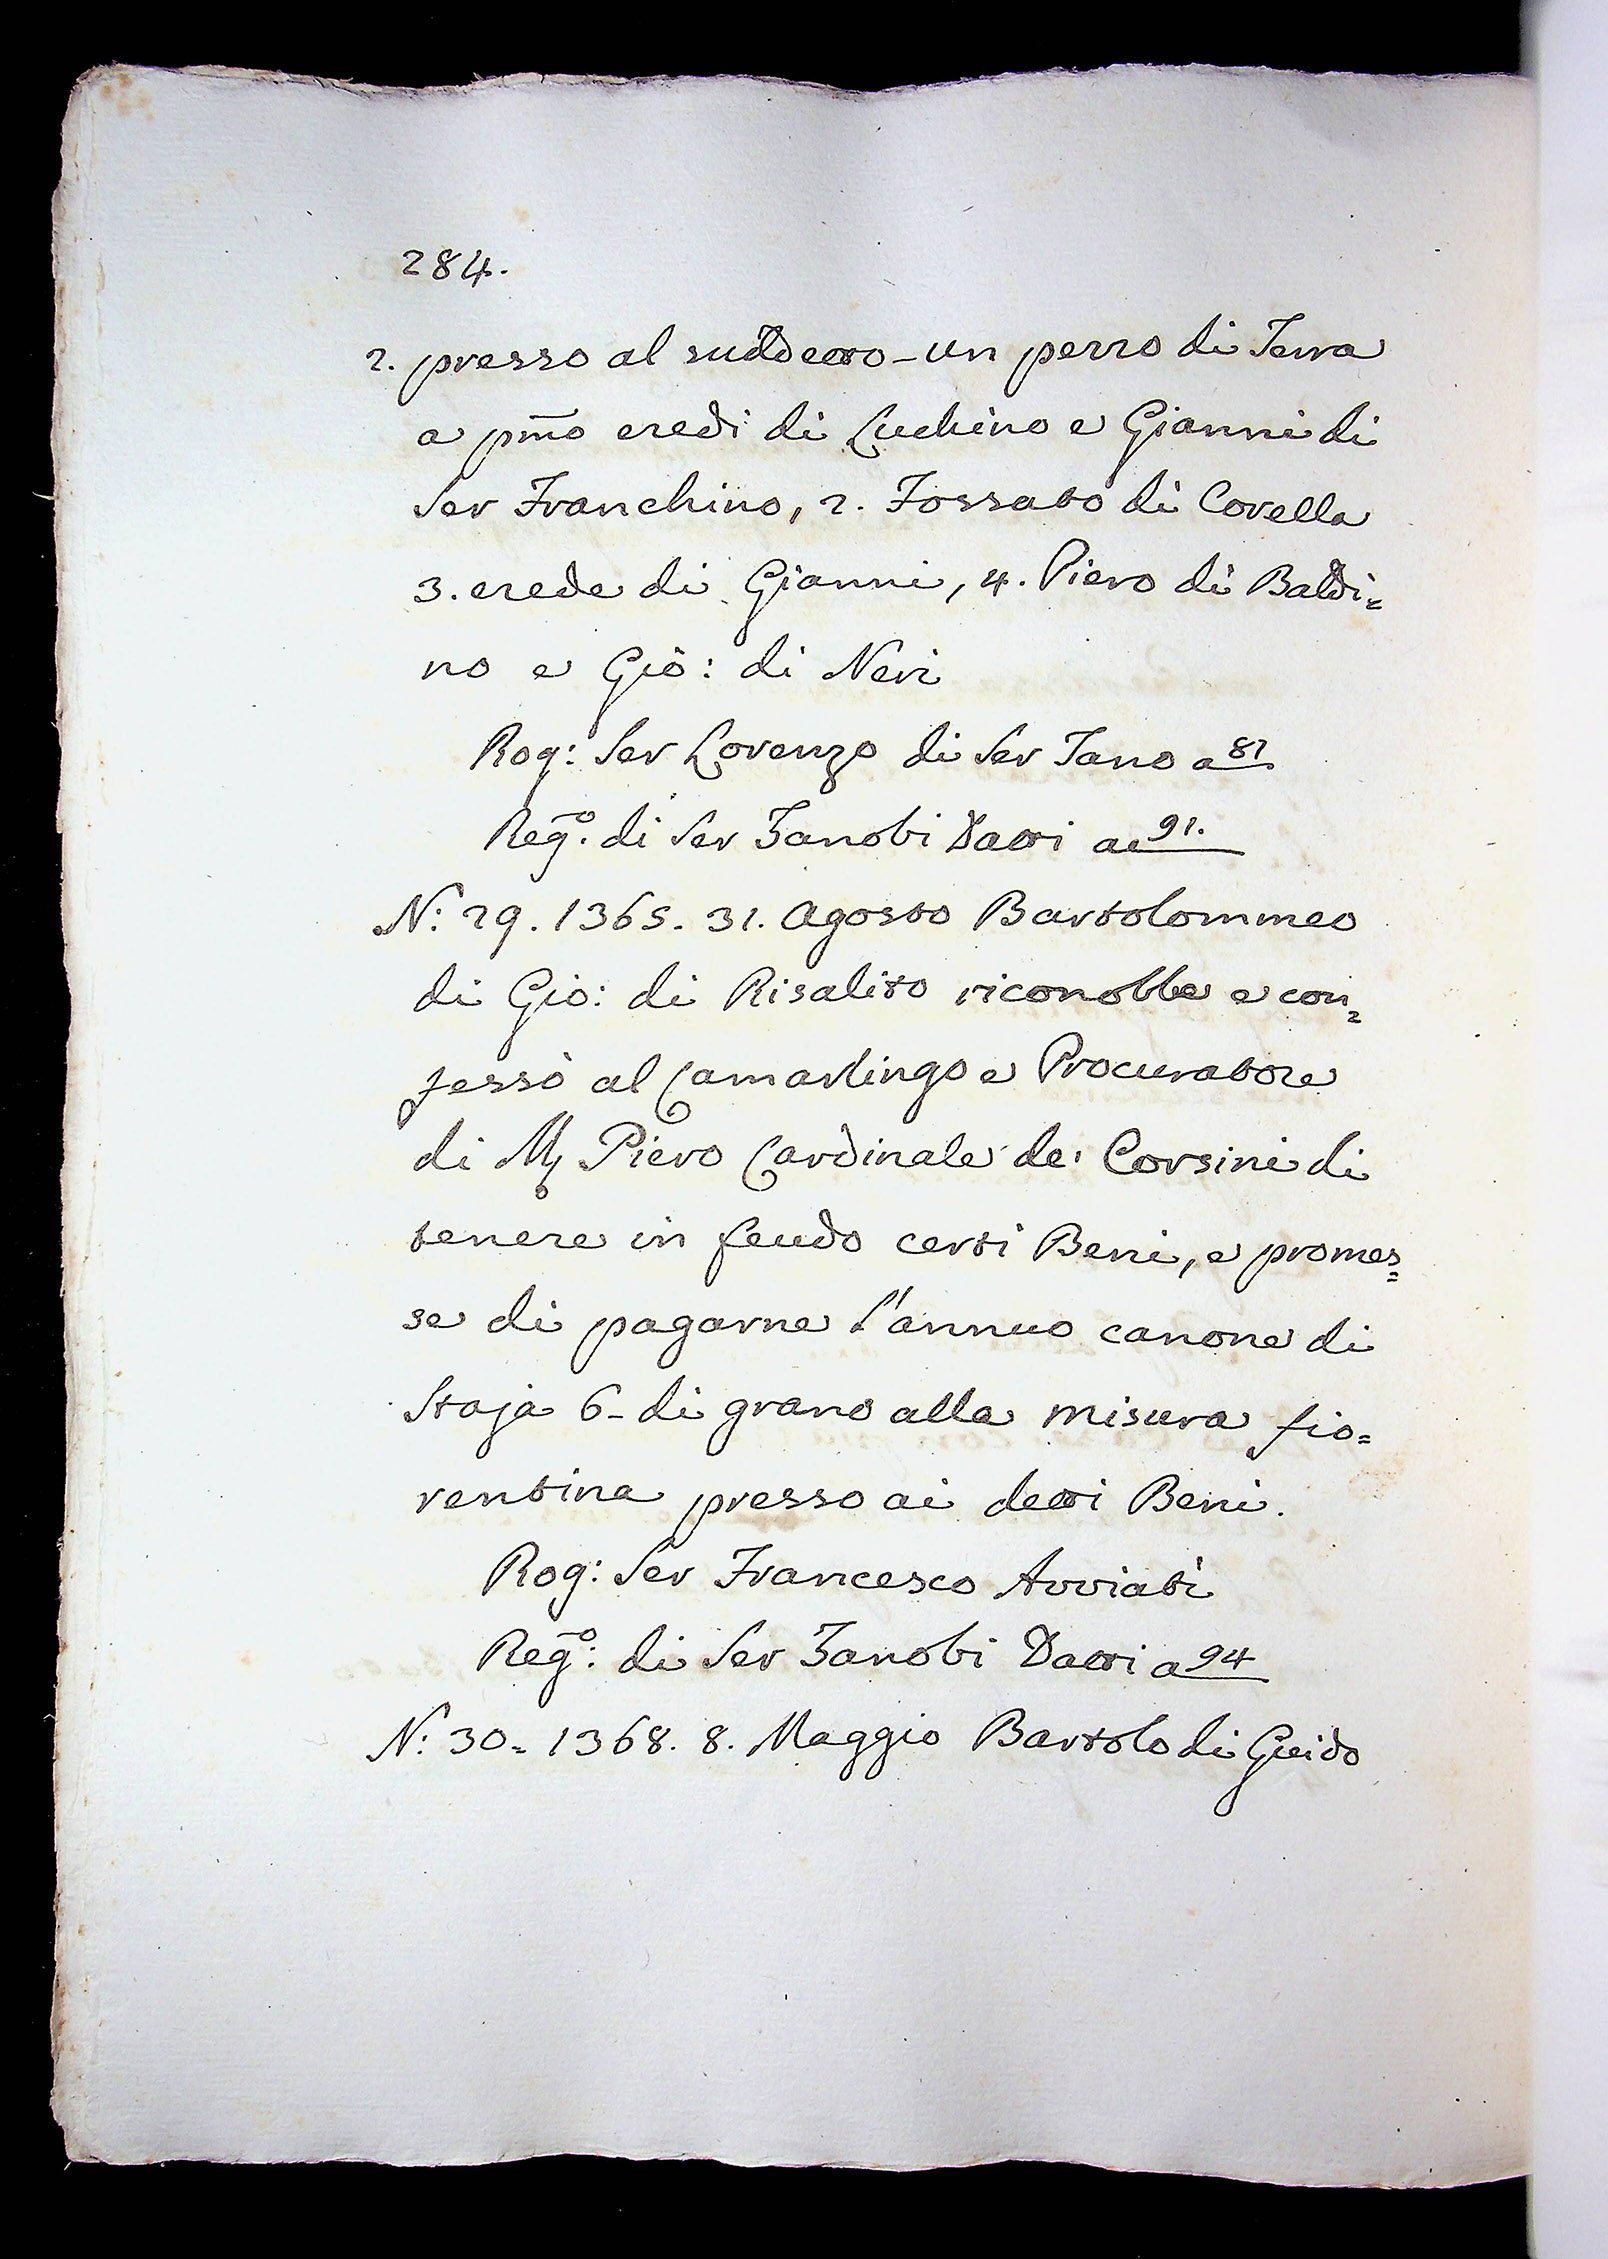 284.
2. presso al suddetto - un pezzo di Terra
a pm̃o eredi di Luchino e Gianni di
Ser Franchino, 2. Fossato di Corella
3. erede di Gianni, 4. Piero di Baldi=
no e Gio: di Neri
Rog: Ser Lorenzo di Ser Tano a 81
Reg.º di Ser Zanobi Datti a c 91.
N: 29. 1365. 31. Agosto Bartolommeo
di Gio: di Risalito riconobbe e con=
fessò al Camarlingo e Procuratore
di M, Piero Cardinale de' Corsini di
tenere in feudo certi Beni, e promes=
se di pagarne l'annuo canone di
Staja 6 - di grano alla misura fio=
rentina presso ai detti Beni.
Rog: Ser Francesco Avviati
Regº: di Ser Zanobi Datti a 94
N: 30 = 1368. 8. Maggio Bartolo di Guido